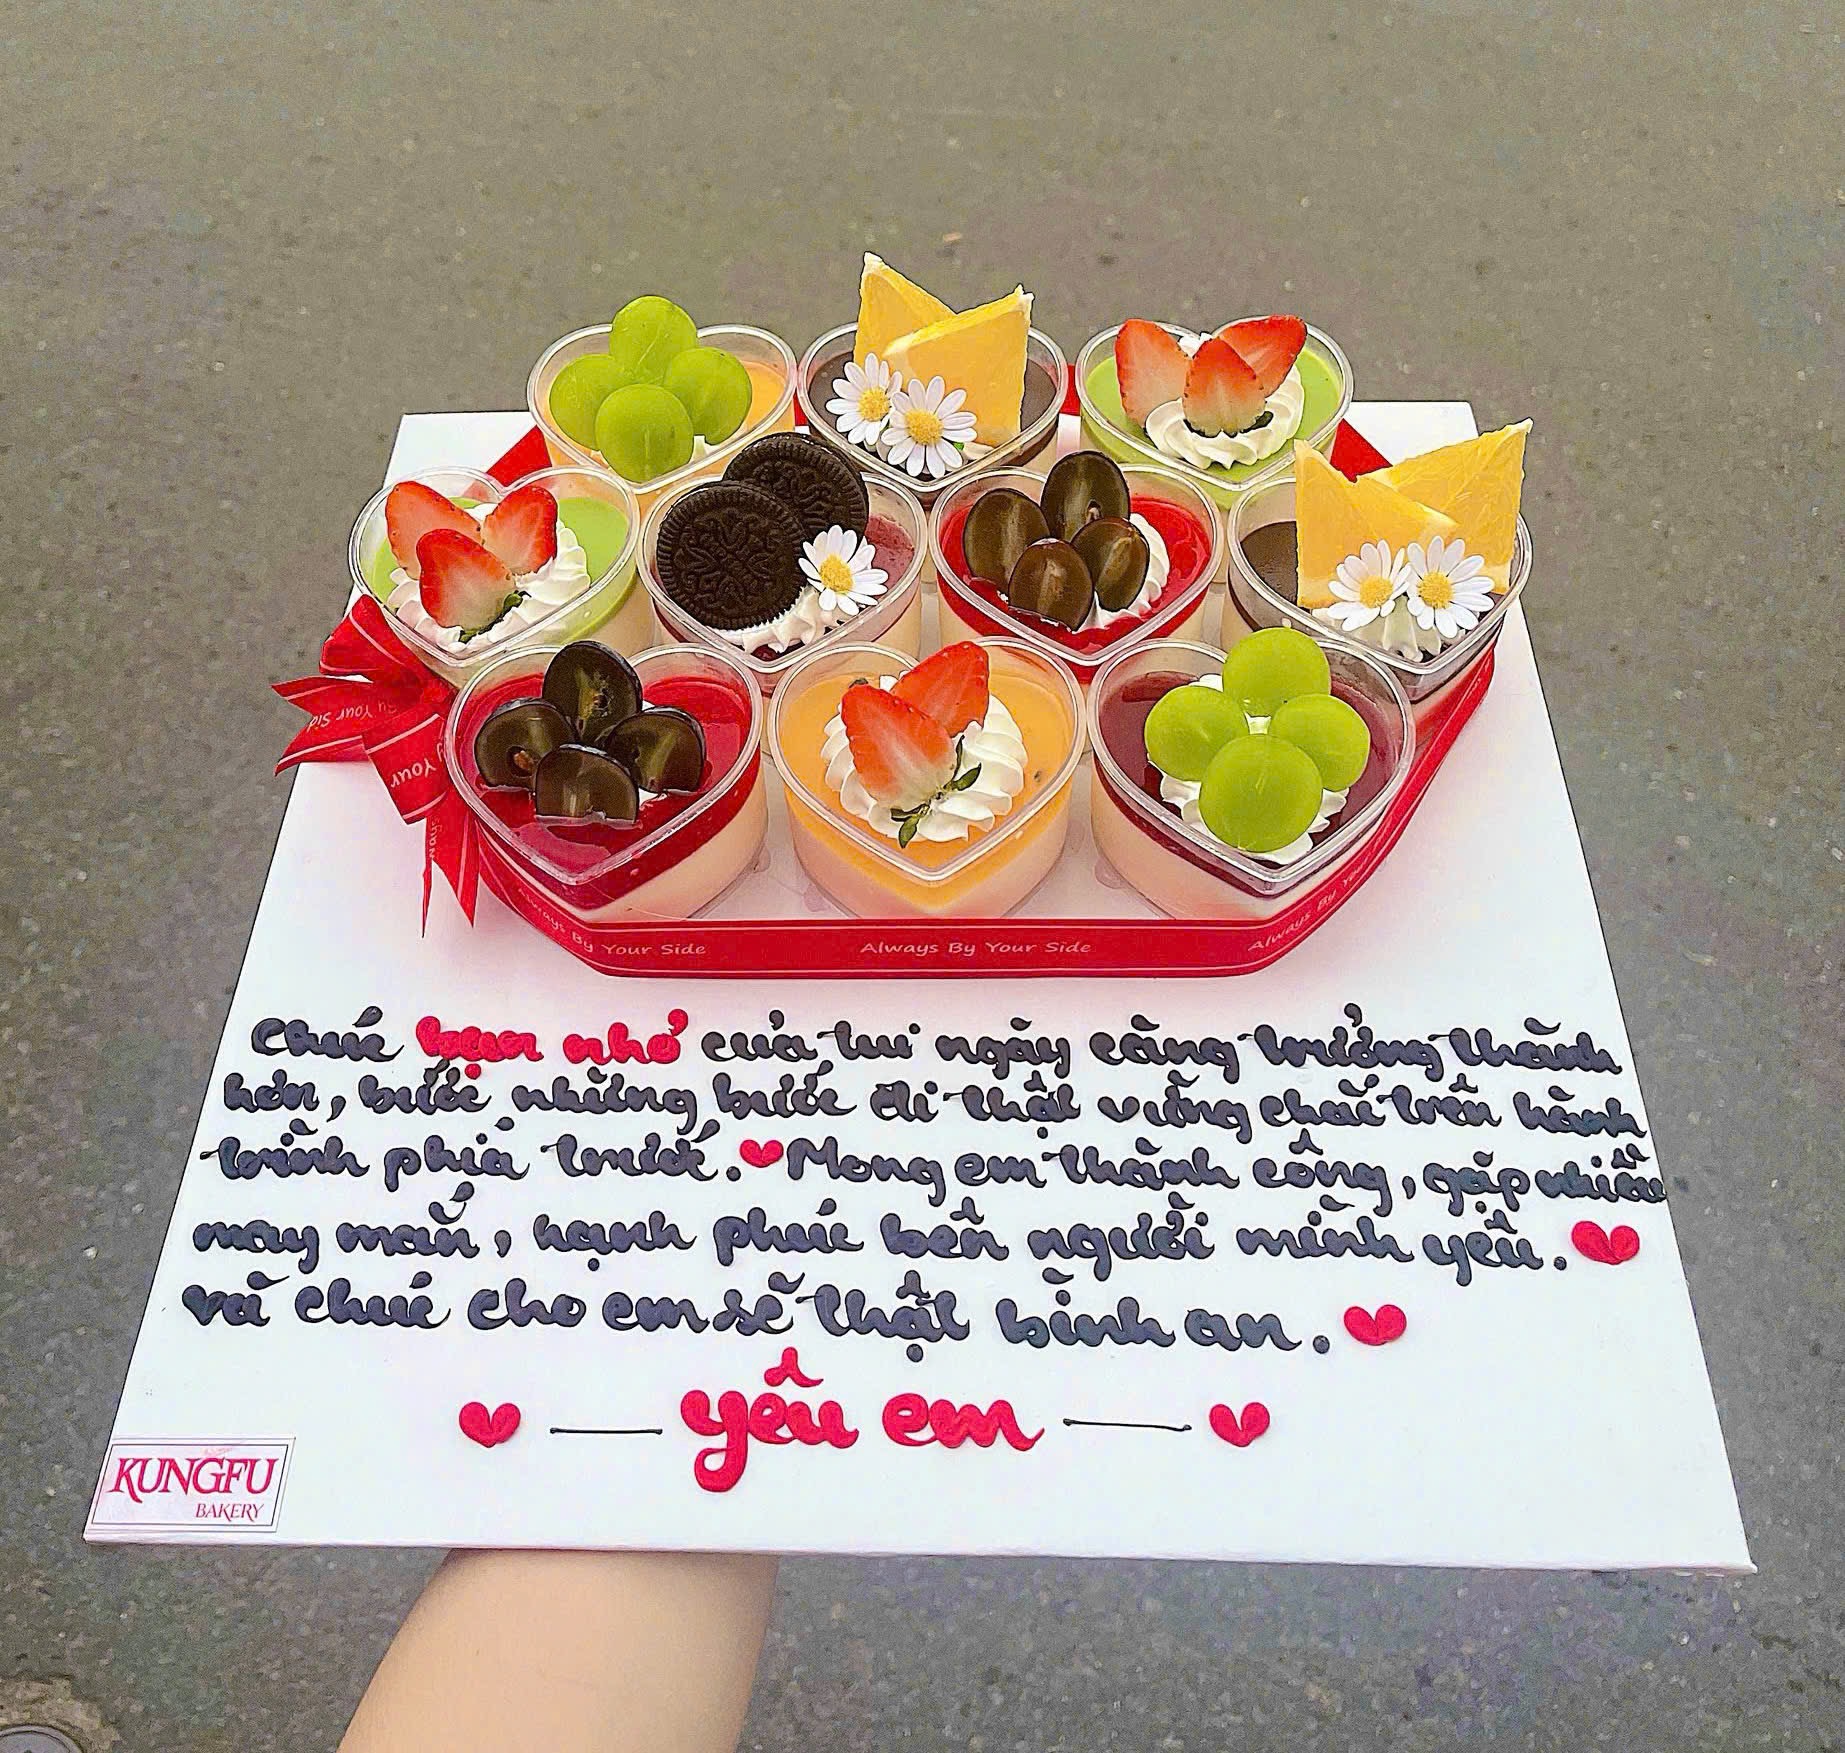 By Your Side
By Your
Always By Your Side
Always By Your Side
Always By Your
Chúc bạn nhỏ của tui ngày càng trưởng thành
hơn, bước những bước đi thật vững chãi trên hành
trình phía trước. Mong em thành công, gặp nhiều
may mắn, hạnh phúc bên người mình yêu.
và chúc cho em sẽ thật bình an.
yêu em
KUNGFU
BAKERY